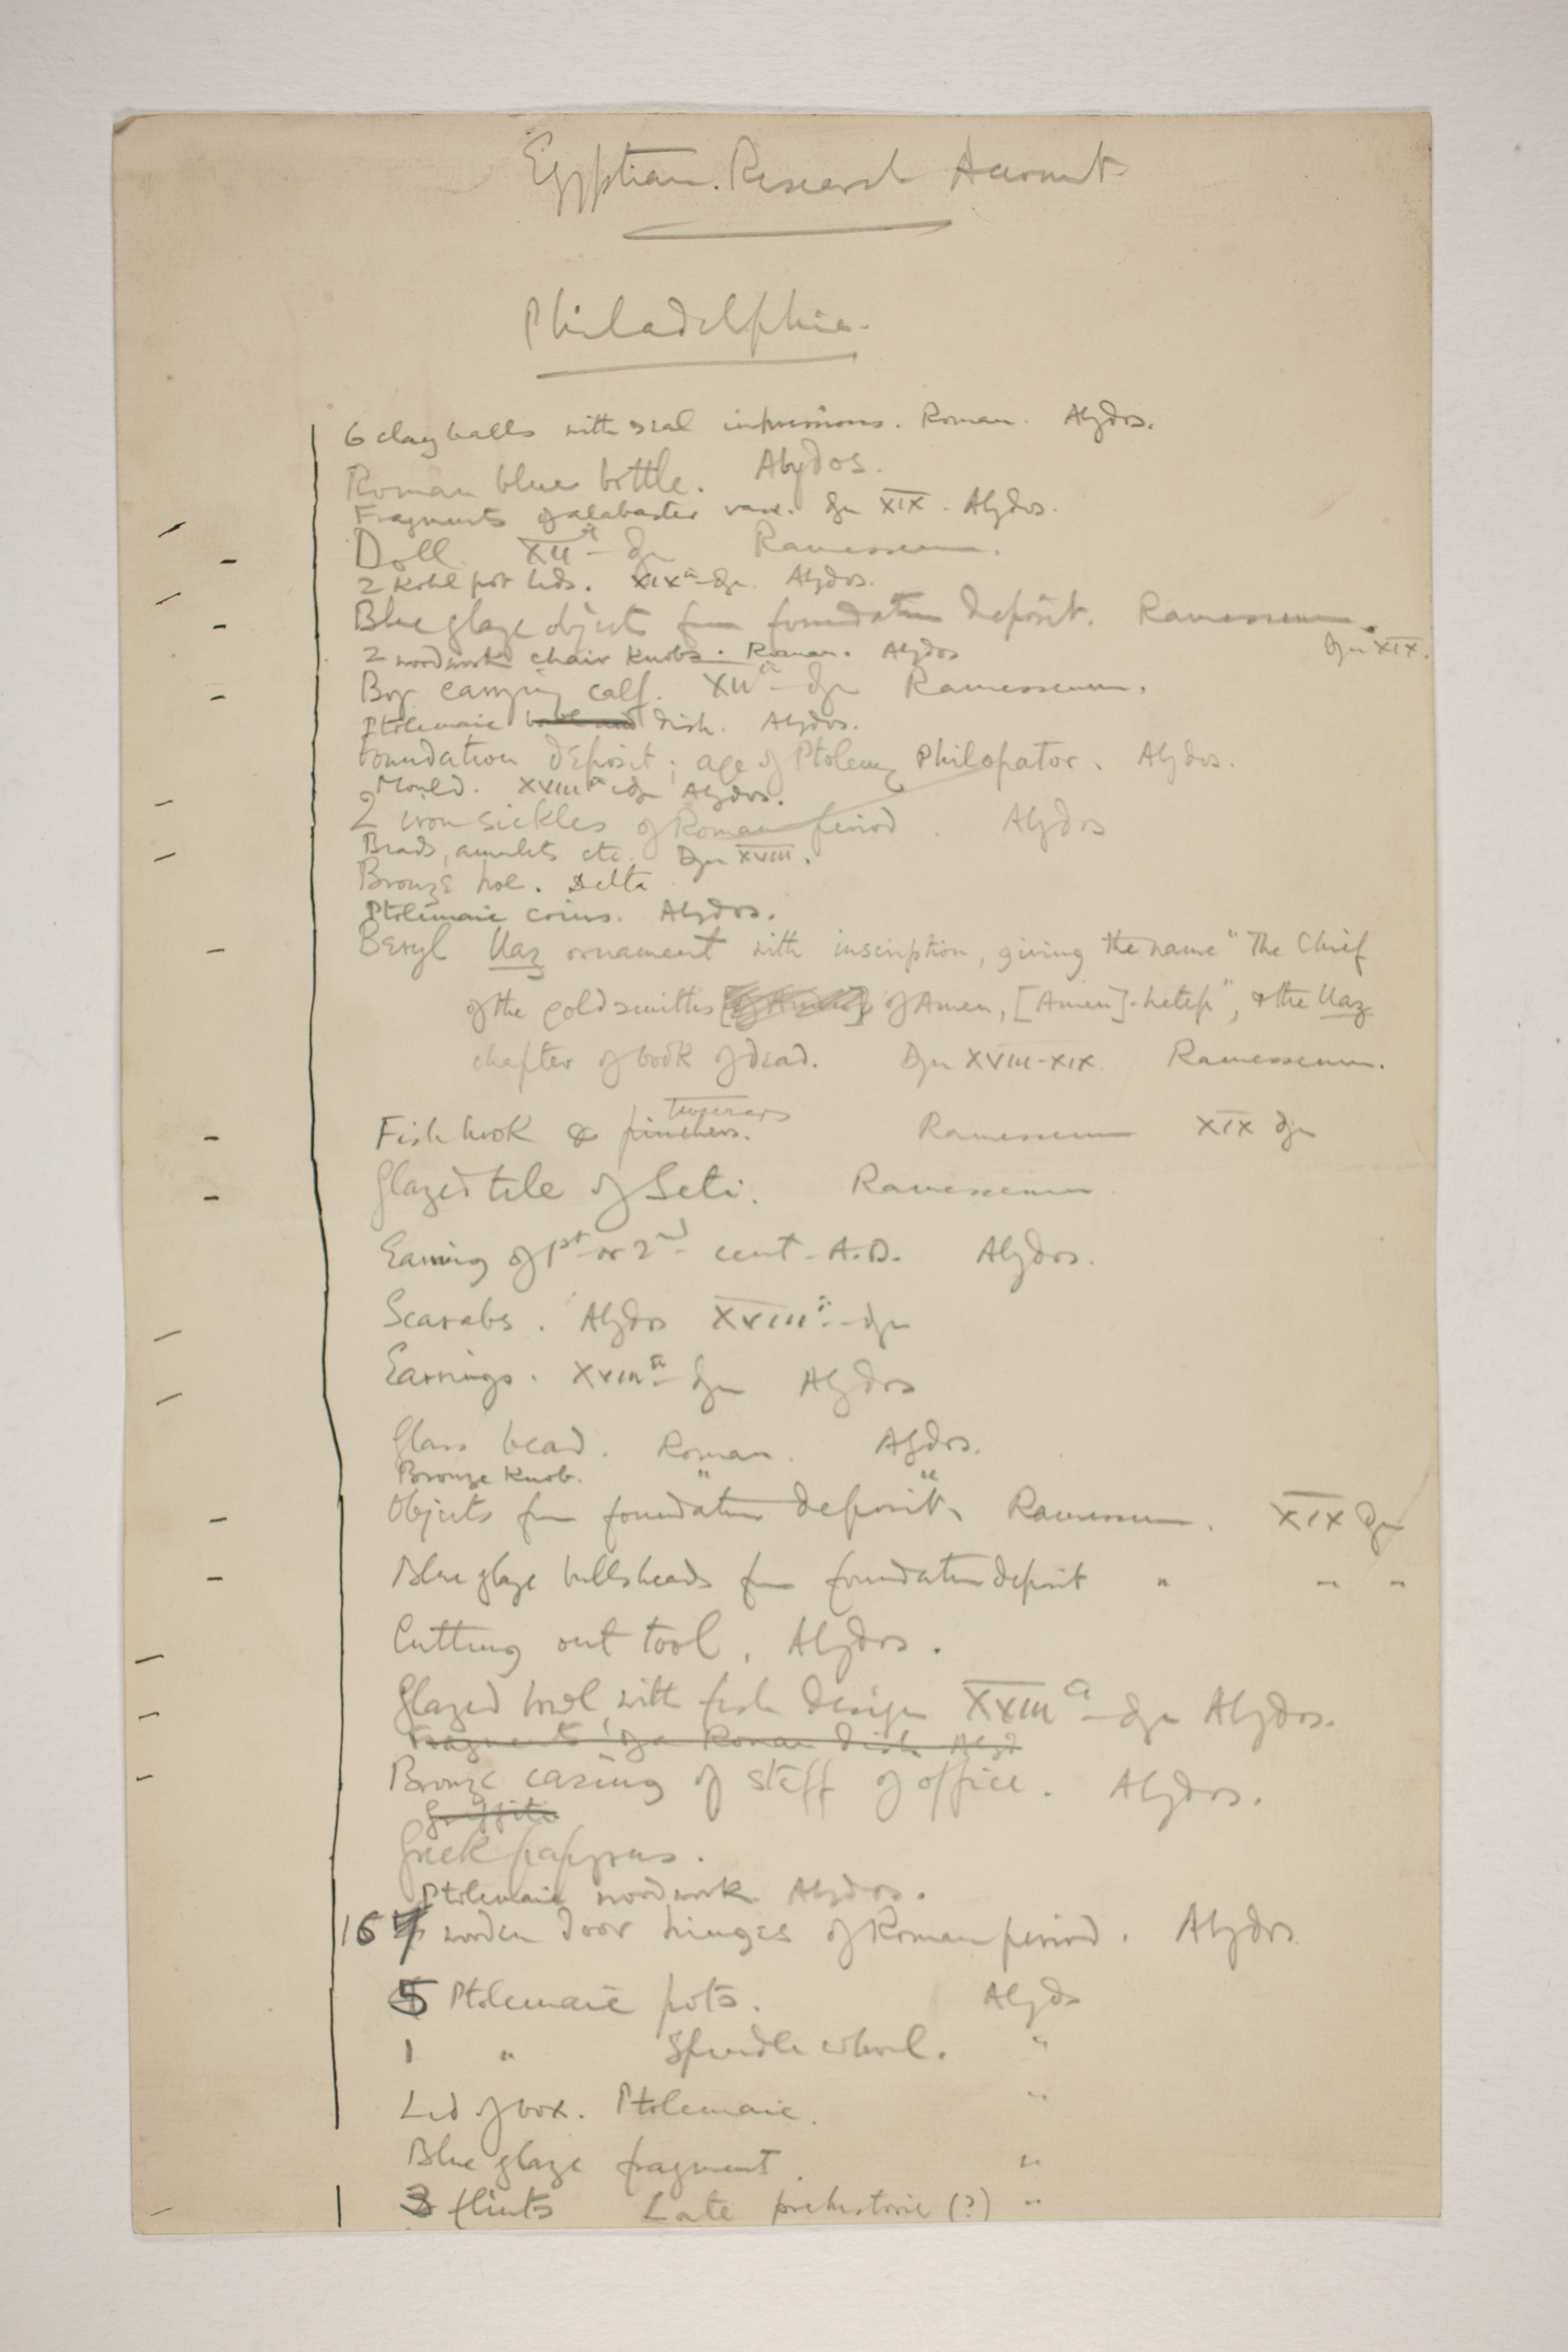 Egyptian. Research Account
Philadelphia.
6 clay balls with seal impressions. Roman. Abydos.
Roman blue bottle. Abydos.
Fragments of alabaster vase. Dyn XIX. Abydos.
Doll. XIIth Dyn Ramesseum.
2 Kohl pot lids. XIXth Dyn. Abydos.
Blue glaze objects from foundation deposit. Ramesseum.
Dyn XIX.
2 woodwork chair knobs. Roman. Abydos
Boy carrying calf. XIIth Dyn Ramesseum.
Ptolemaic dish. Abydos.
Foundation Deposit; age of Ptolemy Philopator. Abydos.
Mould. XVIIIth Dyn Abydos.
2 iron sickles of Roman period. Abydos
Beads, amulets etc. Dyn XVIII.
Bronze hoe. Delta
Ptolemaic coins. Abydos.
Beryl Uaz ornament with inscription, giving the name "The Chief
of the goldsmiths of Amen, [Amen]-hetep", & the Uaz
chapter of book of dead. Dyn XVIII-XIX. Ramesseum.
tweezers
Fish hook & pinchers. Ramesseum XIX Dyn
Glazed tile of Seti. Ramesseum
Earring of 1st or 2nd cent. A.D. Abydos.
Scarabs. Abydos XVIIIth Dyn
Earrings. XVIIIth Dyn Abydos
Glass bead. Roman. Abydos.
Bronze Knob. " "
Objects from foundation deposits Ramesseum. XIX Dyn
Blue glaze bulls heads from foundation deposit " " "
Cutting out tool. Abydos.
Glazed bowl with fish design XXIIIth Dyn Abydos.
Fragments of a Roman dish Abyd
Bronze casing of staff of office. Abydos.
Graffiti
Greek papyrus.
Ptolemaic woodwork Abydos.
16 wooden door hinges of Roman period. Abydos
5 Ptolemaic pots. Abydos
1 " Spindle whorl. "
Lid of box. Ptolemaic. "
Blue glaze fragment. "
3 flints Late prehistoric (?) "